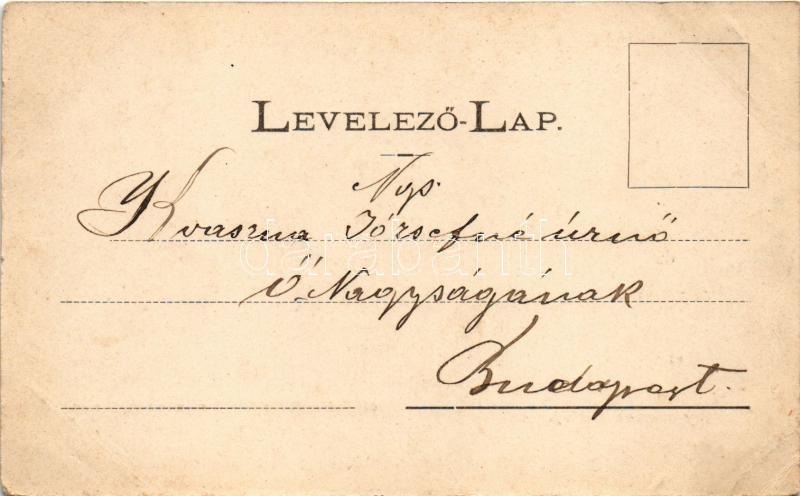 LEVELEZŐ-LAP.
Ngs.
Kvaszna Józsefné úrnő
Ő Nagyságának
Budapest.
darabanth